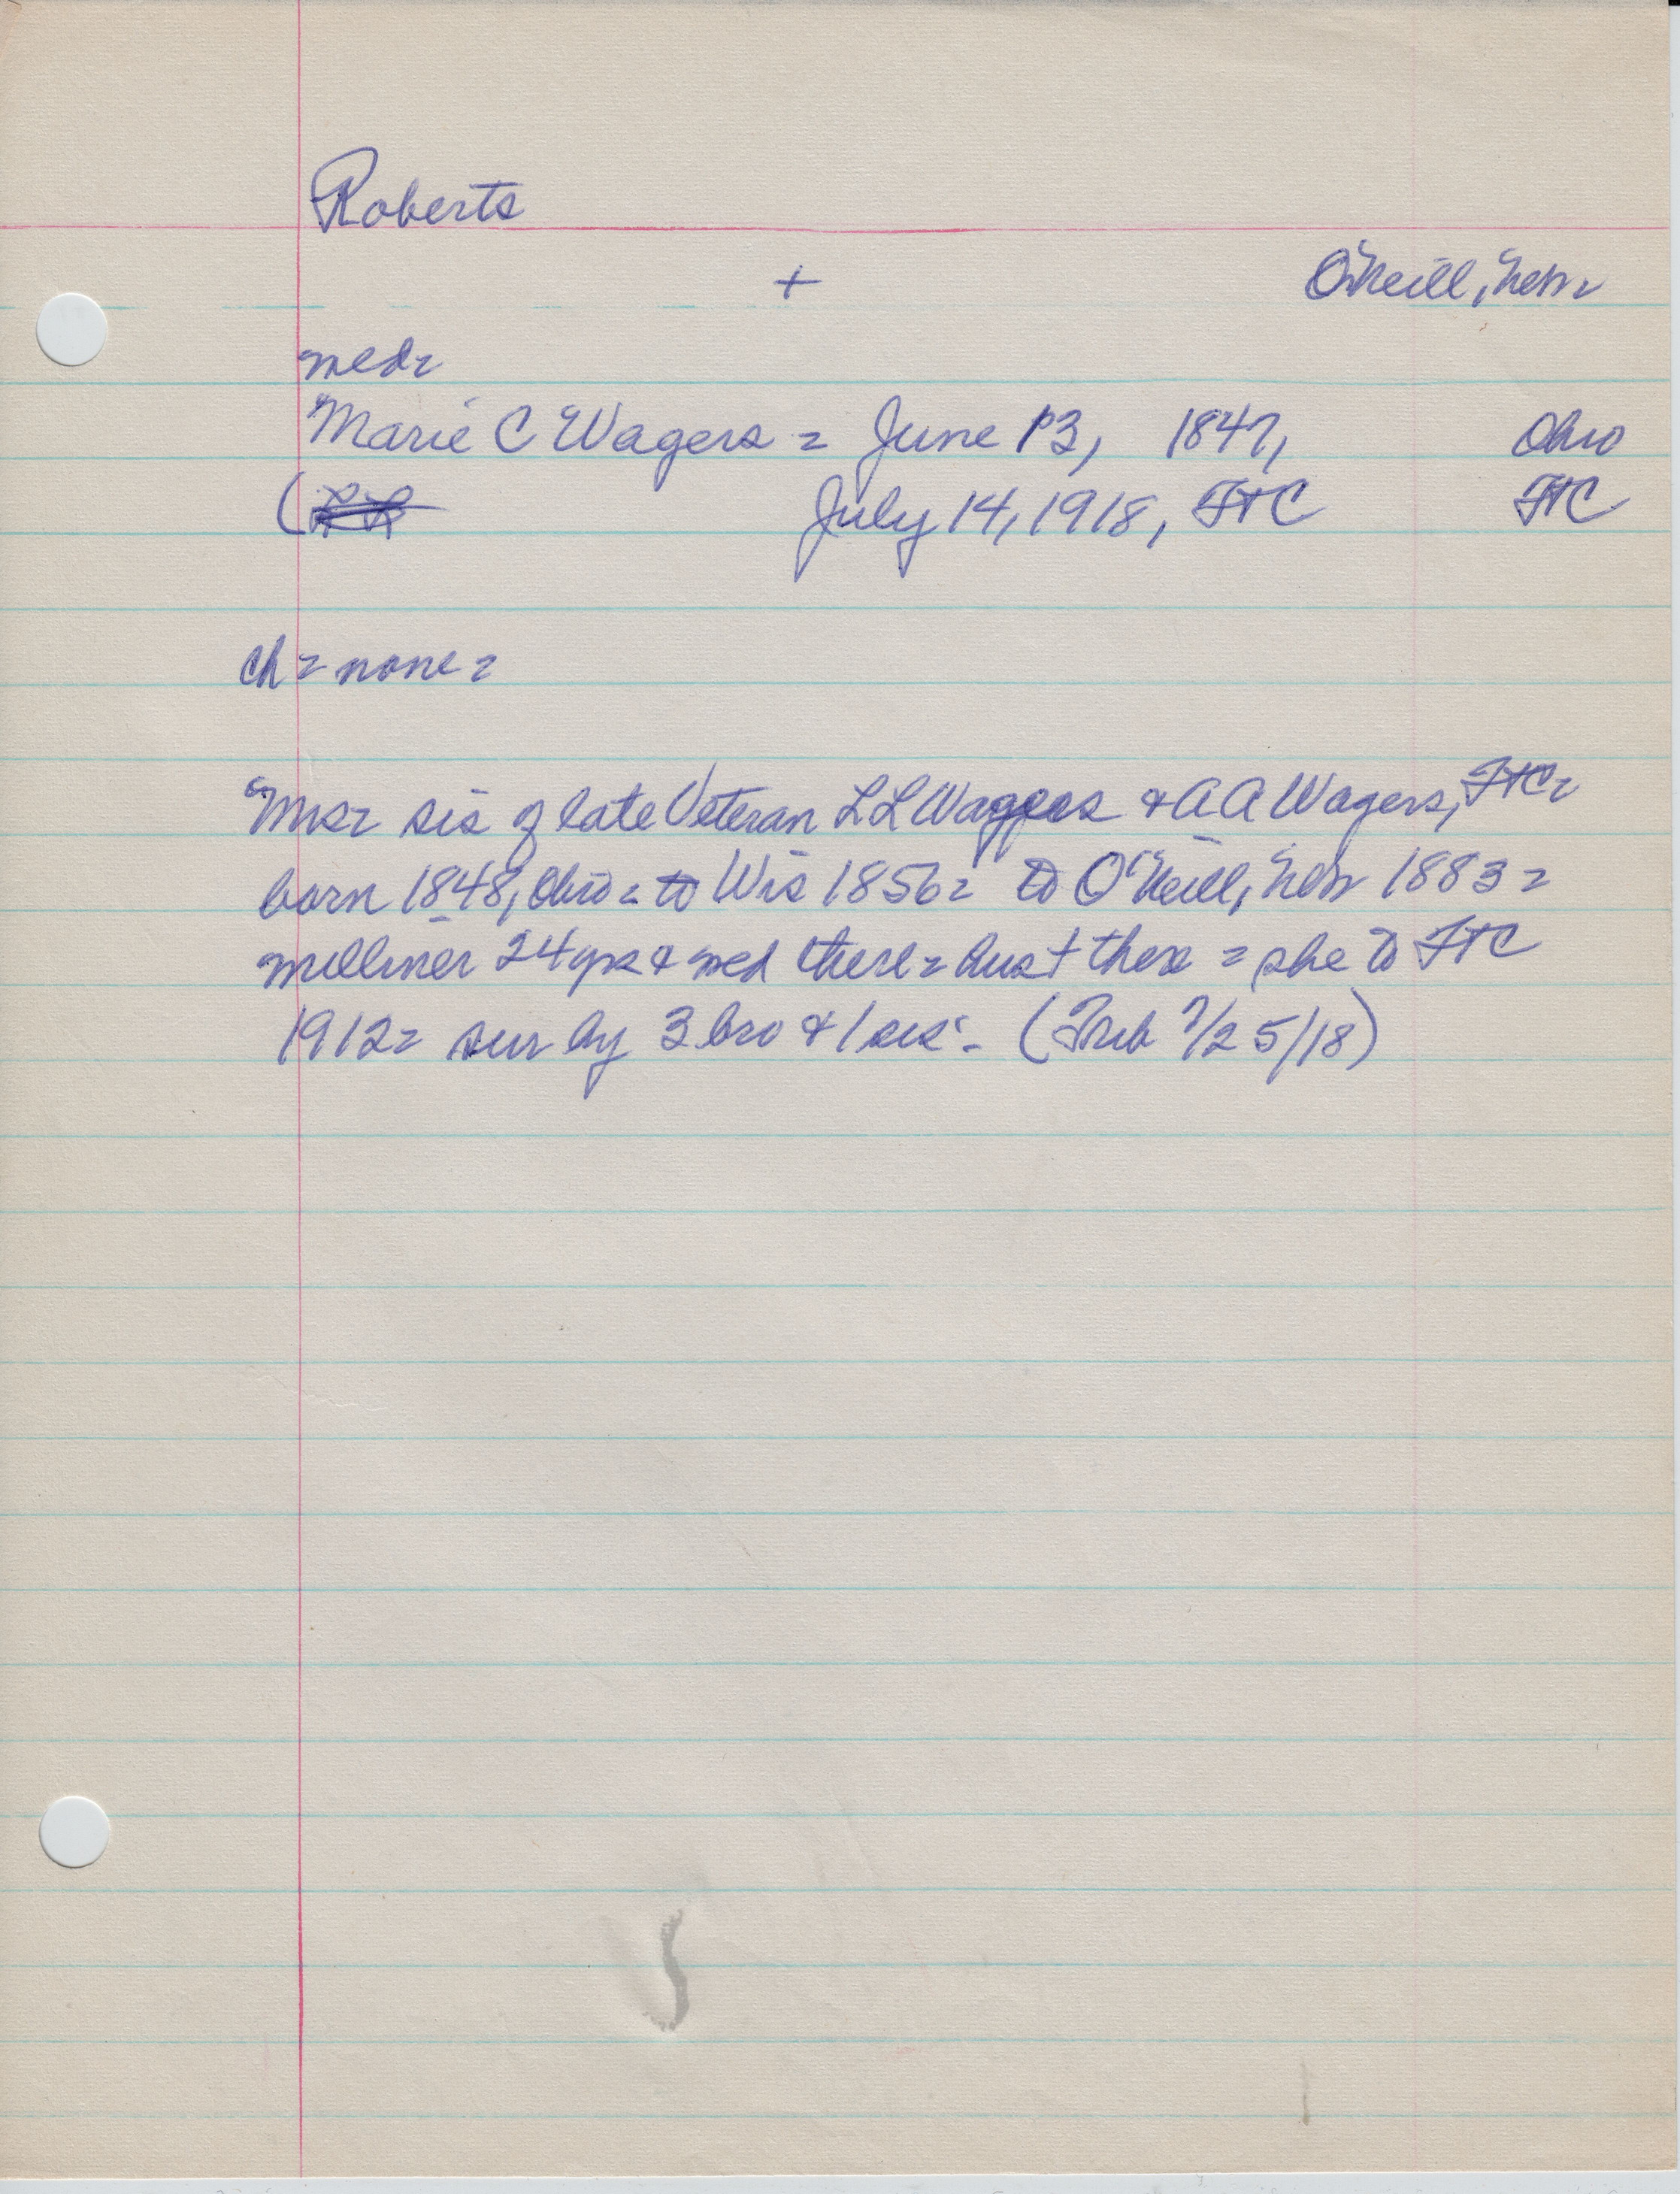 Roberts
+ O'Neill, Nebr
med=
Marie C Wagers = June 13, 1847, Ohio
( July 14, 1918, FTC FTC
ch = none =
Mrs = sis of late Veteran L L Wagers & A A Wagers, FTC =
born 1848, Ohio = to Wis 1856 = to O'Neill, Nebr 1883 =
milliner 24 yrs & med there = hus + there = she to FTC
1912 = sur by 3 bro & 1 sis - (Trib 7/25/18)